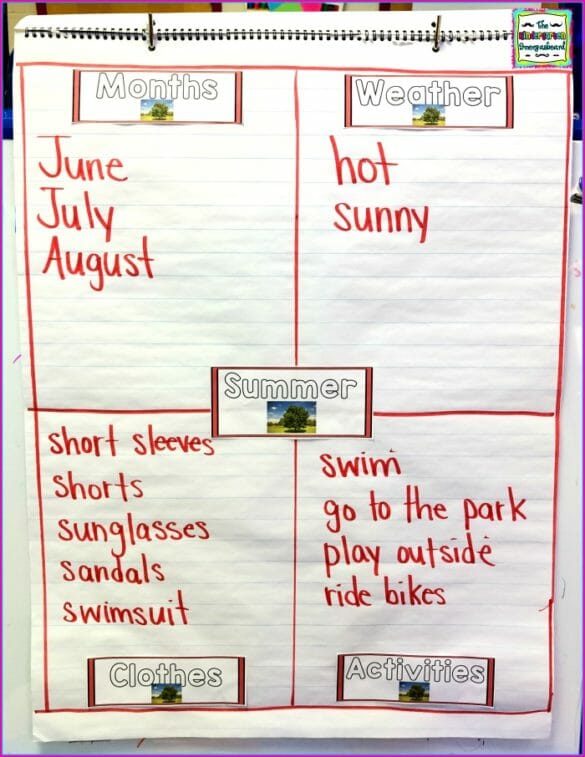 The
Kindergarten
Smorgasboard
Months
June
July
August
Weather
hot
sunny
Summer
short sleeves
shorts
sunglasses
sandals
swimsuit
Clothes
swim
go to the park
play outside
ride bikes
Activities